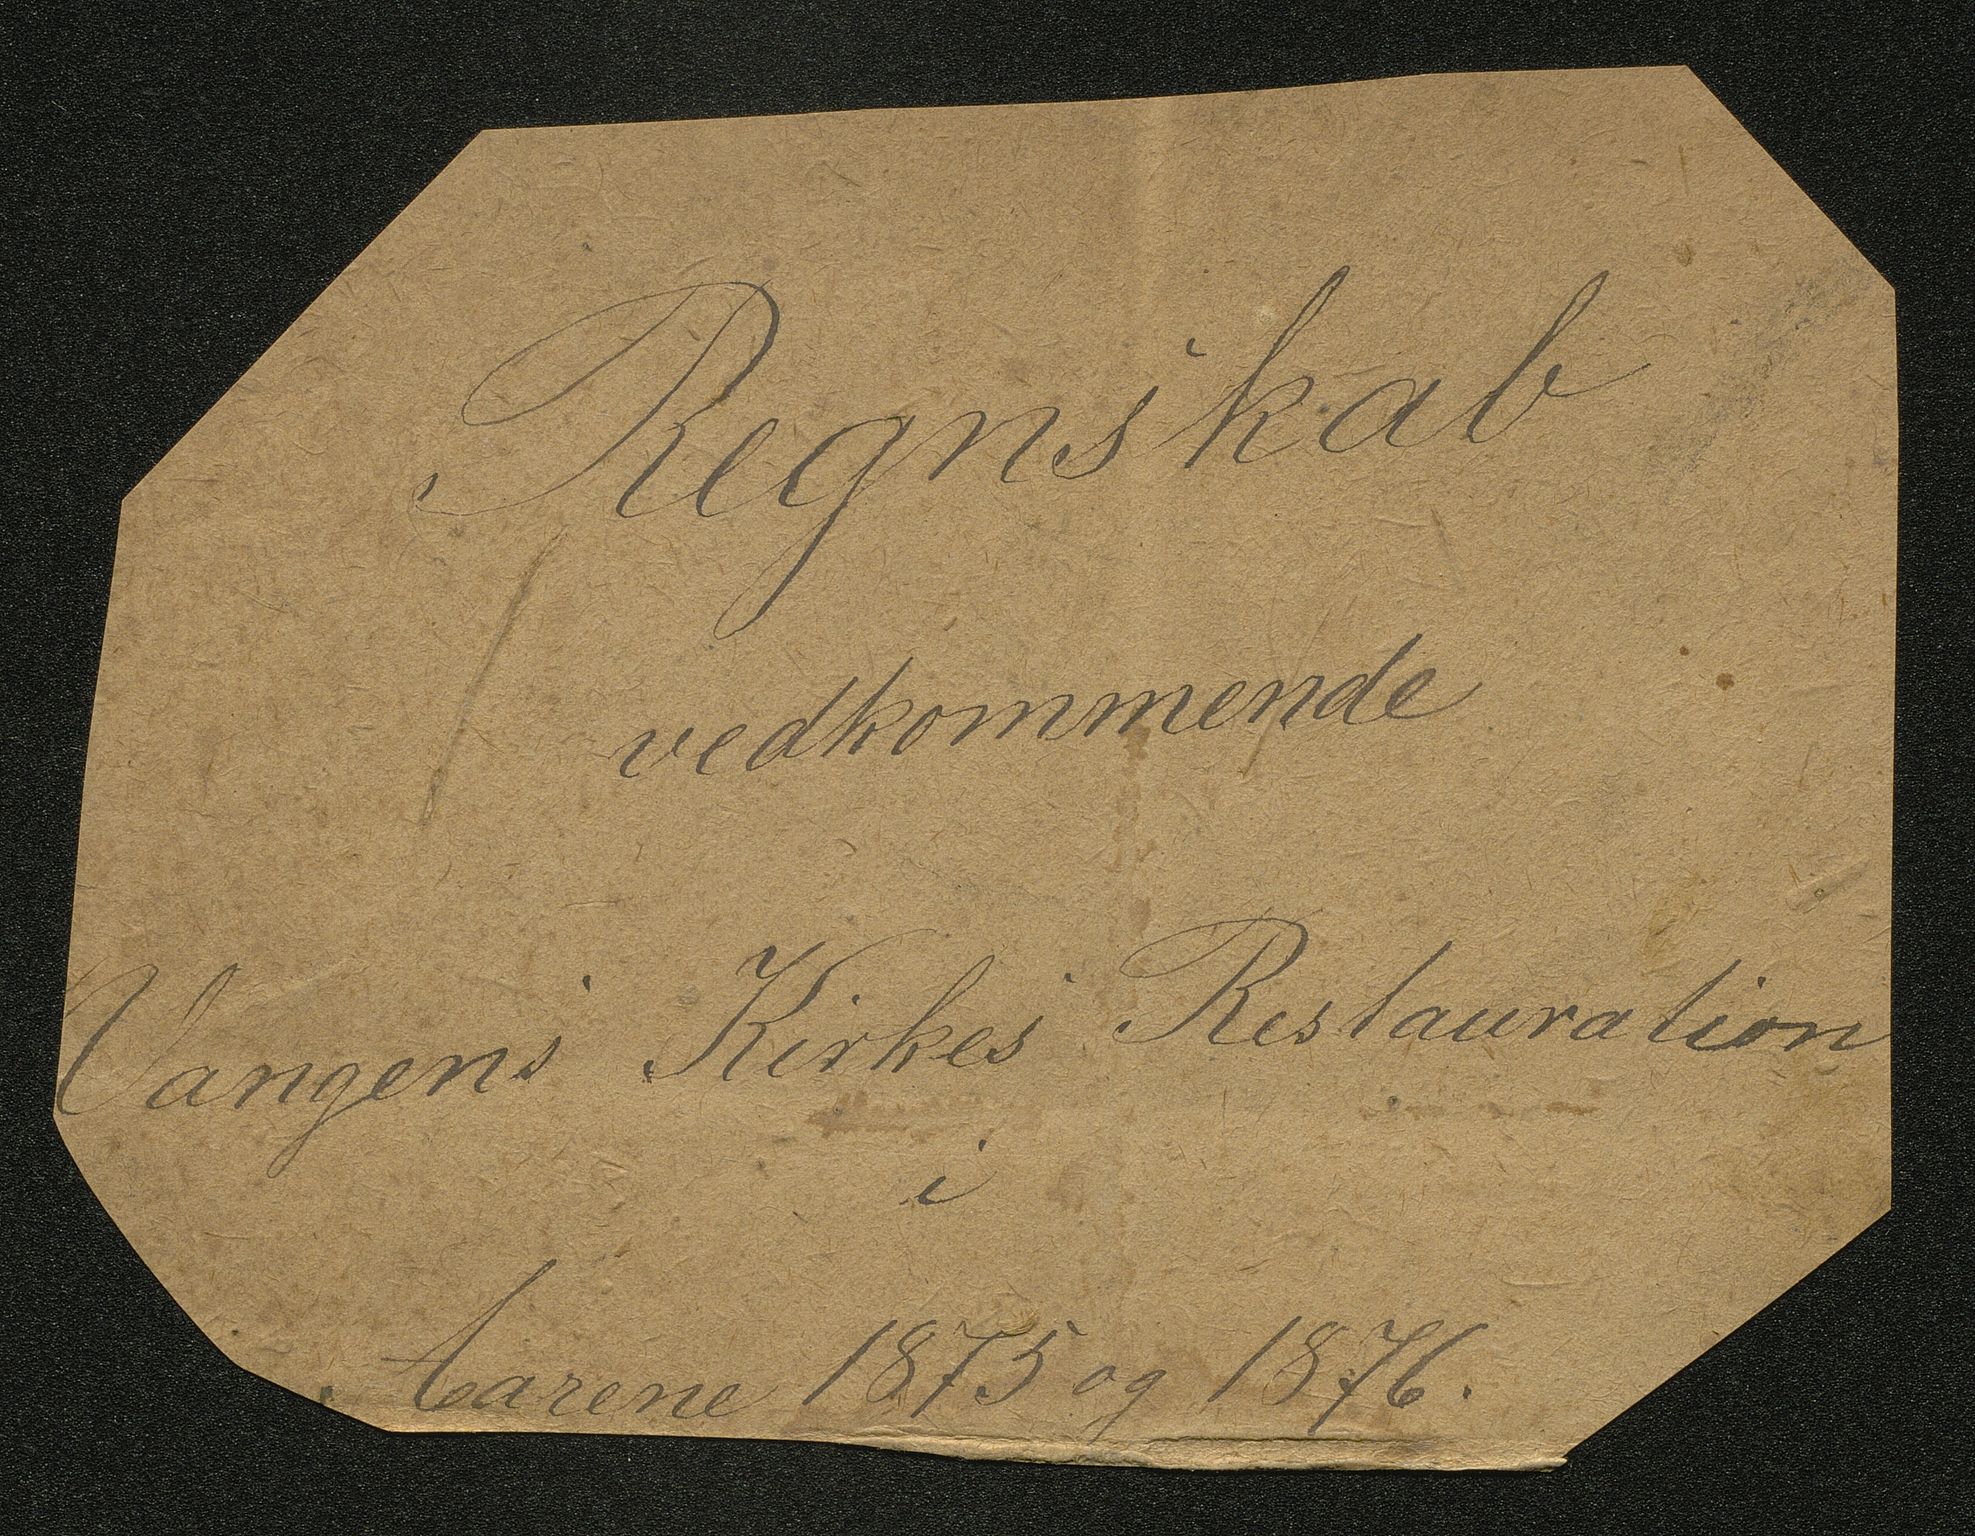 Regnskab
vedkommende
Vangens Kirkes Restauration
i
Aarene 1875 og 1876.